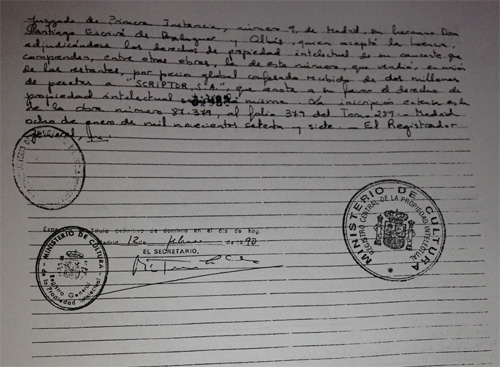 Juzgado de Primera Instancia, número 9, de Madrid, su hermano Don
Santiago Escrivá de Balaguer y Albás, quien aceptó la herencia
adjudicándose los derechos de propiedad intelectual de su causante que
comprenden, entre otras obras, la de este número, que vendió, en unión
de las restantes, por precio global confesado recibido, de dos millones
de pesetas a "SCRIPTOR, S.A." que anota a su favor el derecho de
propiedad intelectual misma. La inscripción extensa es la
de la obra número 87.379, al folio 379 del Tomo 297. Madrid
ocho de enero de mil novecientos setenta y siete. — El Registrador
General,
Título definitivo de dominio en el día de hoy.
Madrid, 12 de febrero de 1990
EL SECRETARIO,
MINISTERIO DE CULTURA
Registro General de la Propiedad Intelectual
MINISTERIO DE CULTURA
REGISTRO CENTRAL DE LA PROPIEDAD INTELECTUAL